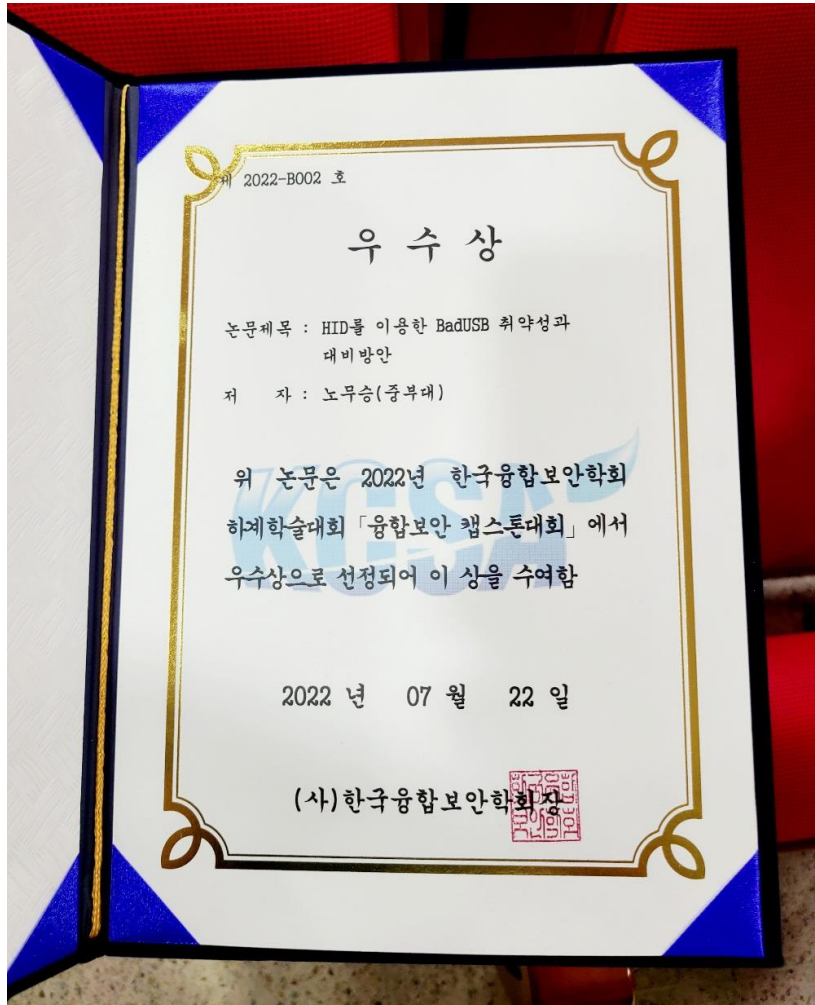 제 2022-B002 호
우 수 상
논문제목 : HID를 이용한 BadUSB 취약성과
대비방안
저 자 : 노무승(중부대)
KCSA
위 논문은 2022년 한국융합보안학회
하계학술대회 「융합보안 캡스톤대회」에서
우수상으로 선정되어 이 상을 수여함
2022 년 07 월 22 일
(사)한국융합보안학회장